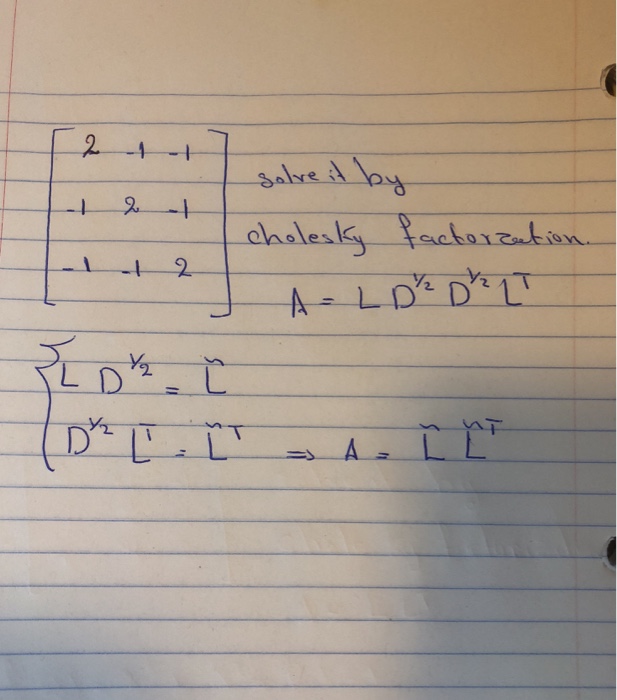 2 -1 -1
solve it by
-1 2 -1
cholesky factorzation.
-1 -1 2
A = L D^1/2 D^1/2 L^T
L D^1/2 = L̃
D^1/2 L^T = L̃^T ⇒ A = L̃ L̃^T